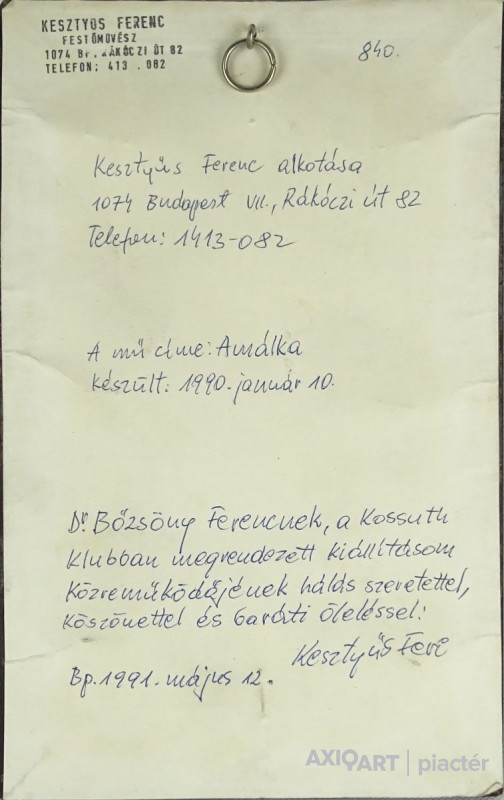 KESZTYŰS FERENC
FESTŐMŰVÉSZ
1074 BP. RÁKÓCZI ÚT 82
TELEFON: 413 . 082
840.
Kesztyűs Ferenc alkotása
1074 Budapest VII., Rákóczi út 82
Telefon: 1413-082
A mű címe: Amálka
Készült: 1990. január 10.
Dr Bőzsöny Ferencnek, a Kossuth
Klubban megrendezett kiállításom
közreműködőjének hálás szeretettel,
köszönettel és baráti öleléssel:
Kesztyűs Feri
Bp. 1991. május 12.
AXIOART | piactér